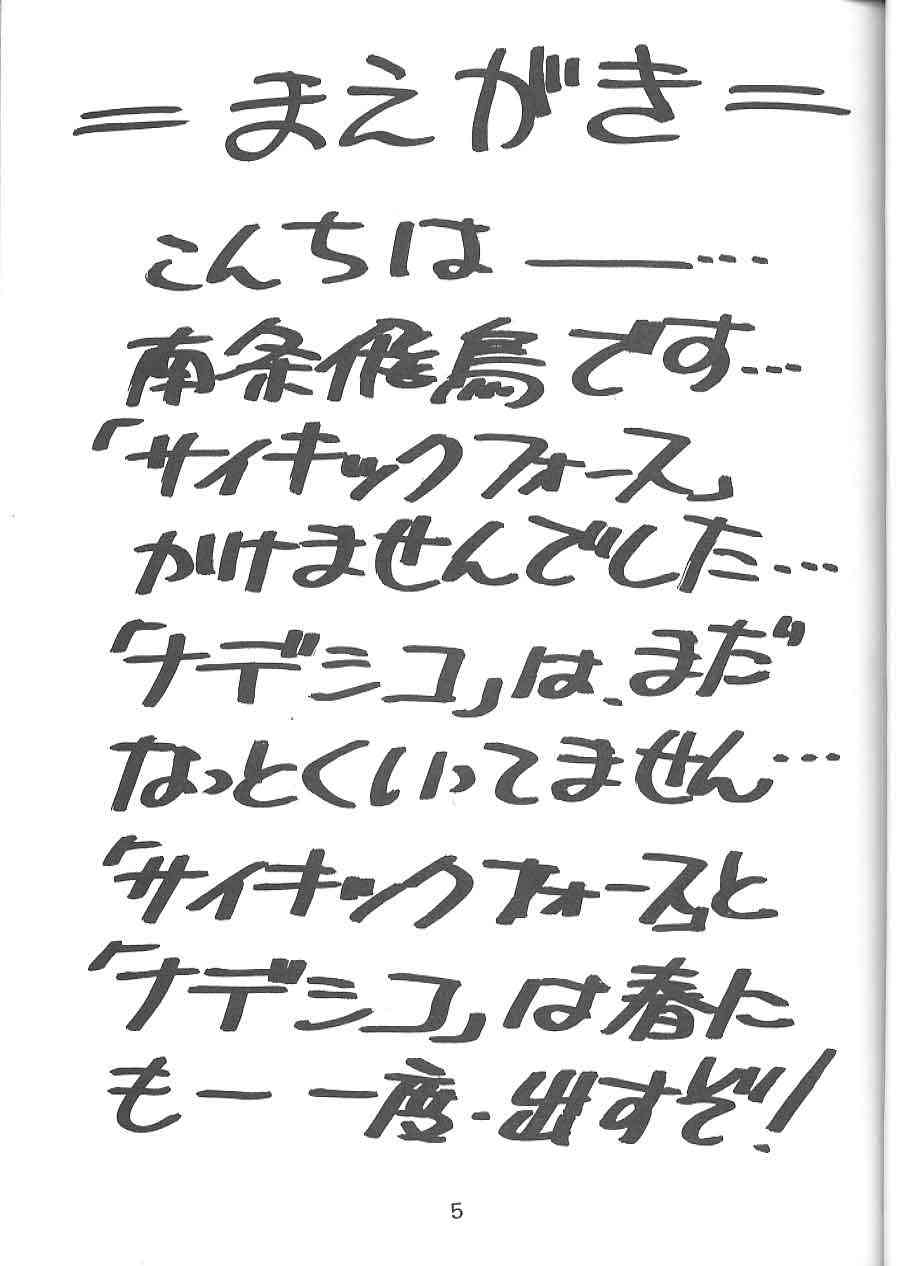 =まえがき=
こんちは――…
南条飛鳥です…
「サイキックフォース」
かけませんでした…
「ナデシコ」は、まだ
なっとくいってません…
「サイキックフォース」と
「ナデシコ」は春に
もー一度、出すぞ!
5